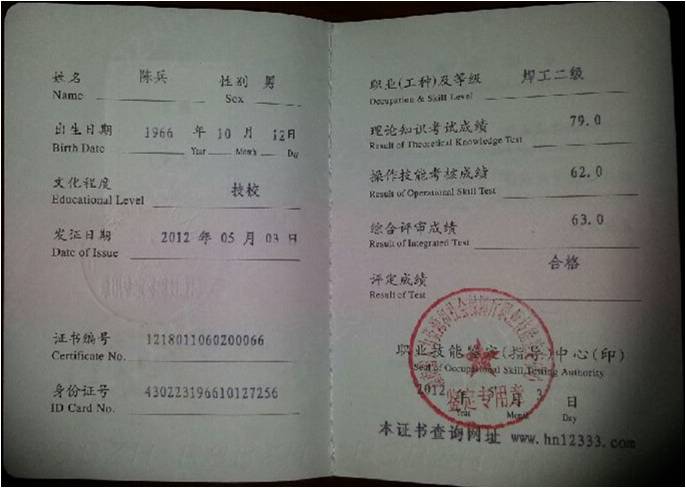 姓名 陈兵 性别 男
Name Sex
出生日期 1966 年 10 月 12日
Birth Date Year Month Day
文化程度 技校
Educational Level
发证日期 2012 年 05 月 03 日
Date of Issue
证书编号 1218011060200066
Certificate No.
身份证号 430223196610127256
ID Card No.
职业(工种)及等级 焊工二级
Occupation & Skill Level
理论知识考试成绩 79.0
Result of Theoretical Knowledge Test
操作技能考核成绩 62.0
Result of Operational Skill Test
综合评审成绩 63.0
Result of Integrated Test
评定成绩 合格
Result of Test
职业技能鉴定(指导)中心(印)
Seal of Occupational Skill Testing Authority
鉴定专用章
2012 年 5 月 3 日
Year Month Day
本证书查询网址 www.hn12333.com